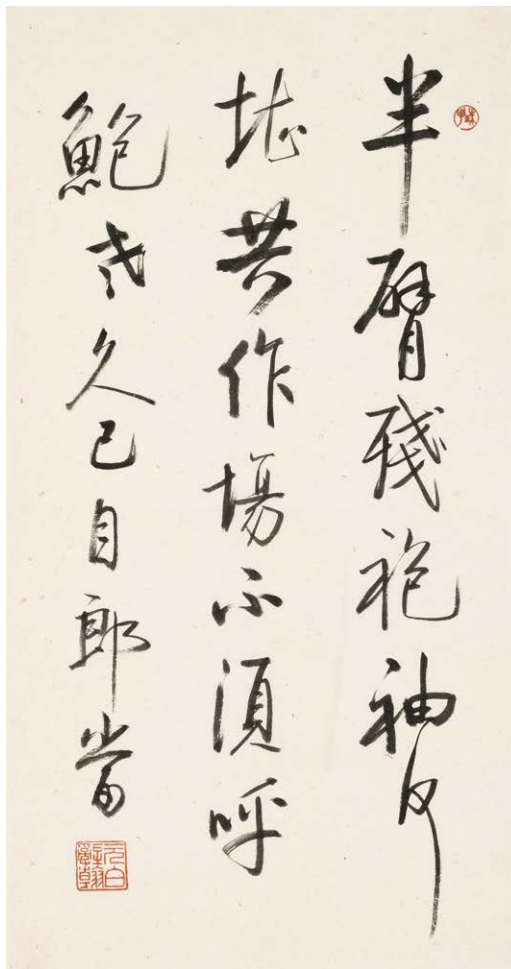 半臂殘袍袖何
堪共作場不須呼
鮑老久已自郎當